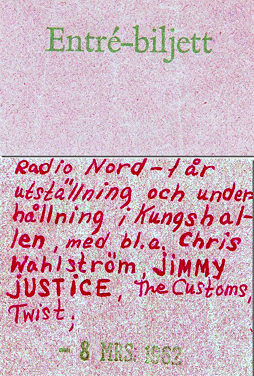 Entré-biljett
Radio Nord - 1 år
utställning och under
hållning i Kungshal-
len, med bl.a. Chris
Wahlström, JIMMY
JUSTICE, the Customs,
Twist,
8 MRS. 1962